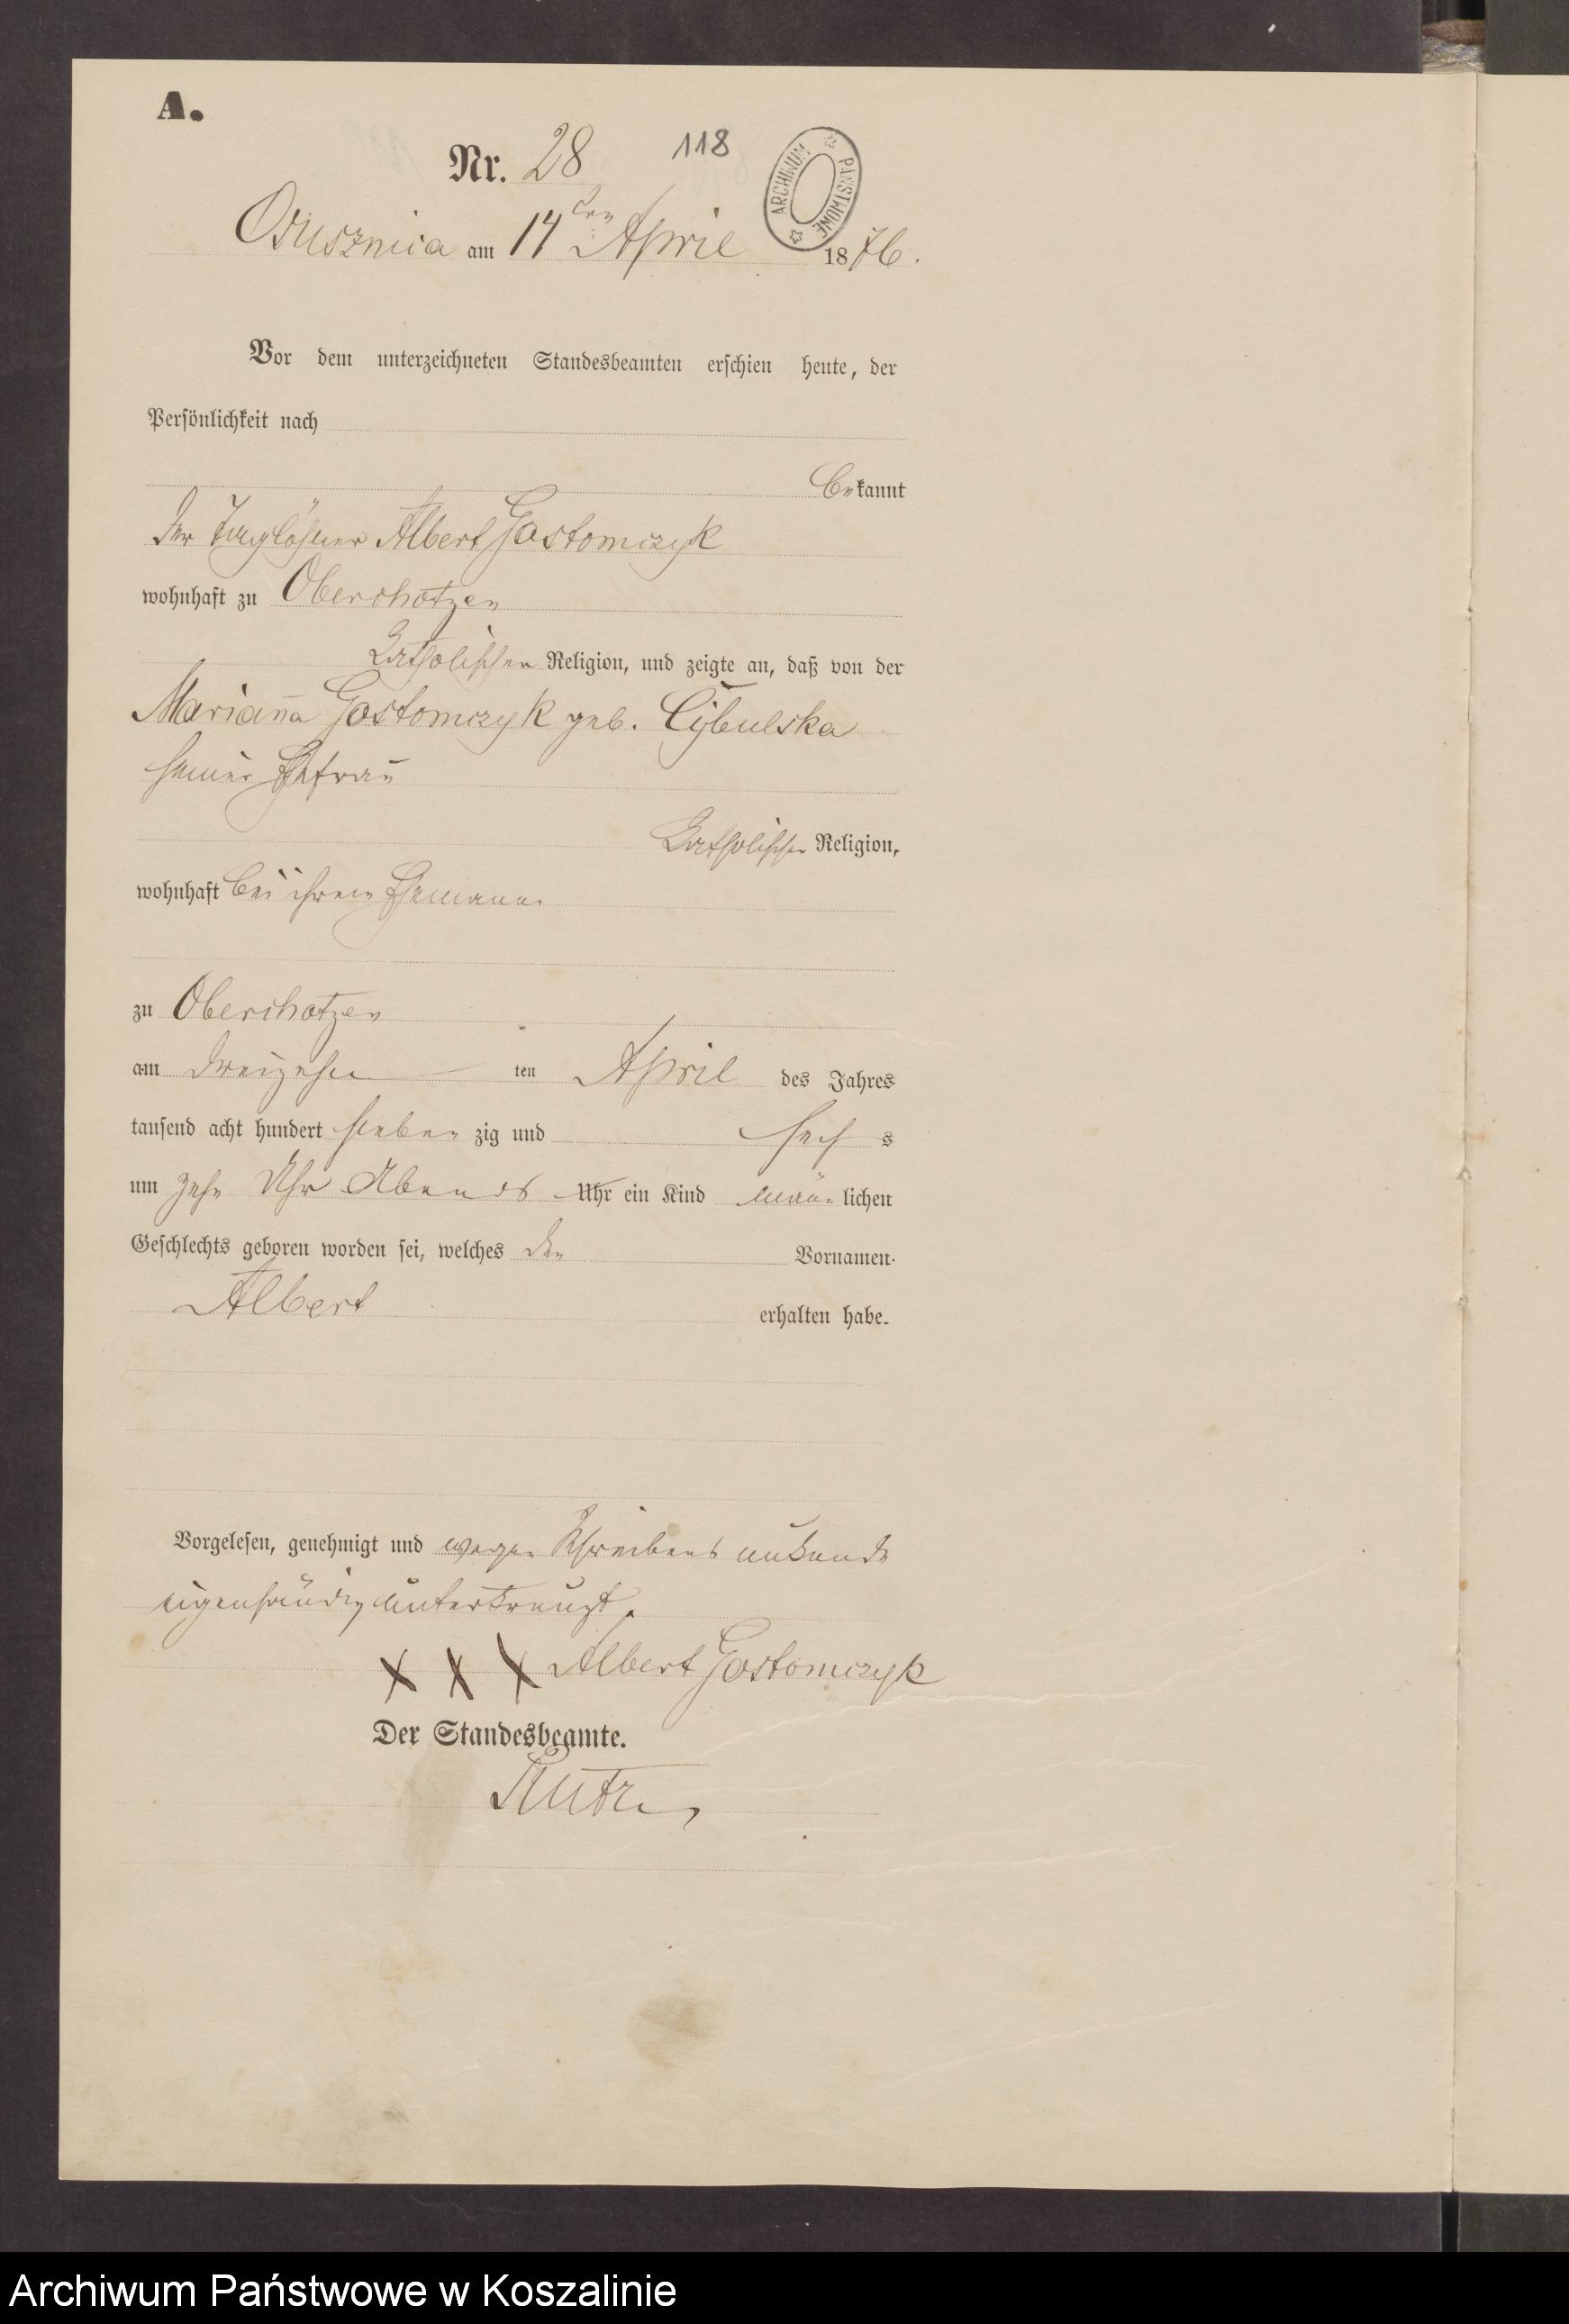 A.
Nr. 28 118
ARCHIWUM PAŃSTWOWE
Osusznica am 14ten April 1876.
Vor dem unterzeichneten Standesbeamten erschien heute, der
Persönlichkeit nach
bekannt
der Taglöhner Albert Gostomczyk
wohnhaft zu Oberchotzen
Katholischer Religion, und zeigte an, daß von der
Mariana Gostomczyk geb. Cÿbulska
seiner Ehefrau
Katholischer Religion,
wohnhaft bei ihrem Ehemanne
zu Oberchotzen
am dreizehn ten April des Jahres
tausend acht hundert sieben zig und sech s
um zehn Uhr Abends Uhr ein Kind män lichen
Geschlechts geboren worden sei, welches den Vornamen
Albert erhalten habe.
Vorgelesen, genehmigt und wegen Schreibens unkunde
eigenhändig unterkreuzt.
X X X Albert Gostomczyk
Der Standesbeamte.
Archiwum Państwowe w Koszalinie